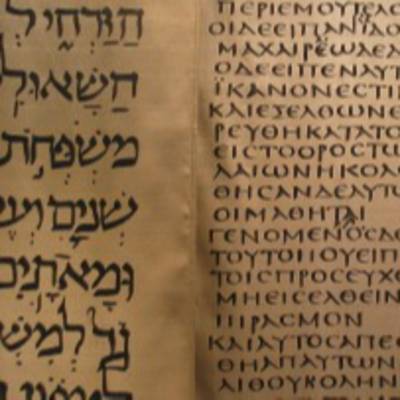 הַזַּרְחִי לְ
הַשָּׁאוּל
מִשְׁפְּחֹת
שְׁנַיִם וְעֶ
וּמָאתָיִם
גָד לְמִשְׁ
ΠΕΡΙΕΜΟΥΤΕΛΟ
ΟΙΔΕΕΙΠΑΝΙΔΟ
ΜΑΧΑΙΡΕΩΔΕ
ΟΔΕΕΙΠΕΝΑΥΤ
ΪΚΑΝΟΝΕϹΤΙ
ΚΑΙΕΞΕΛΘΩΝΕ
ΡΕΥΘΗΚΑΤΑΤΟ
ΕΙϹΤΟΟΡΟϹΤΩ
ΛΑΙΩΝΗΚΟΛ
ΘΗϹΑΝΔΕΑΥΤ
ΟΙΜΑΘΗΤΑΙ
ΓΕΝΟΜΕΝΟϹΔΕ
ΤΟΥΤΟΠΟΥΕΙΠ
ΤΟΙϹΠΡΟϹΕΥΧ
ΜΗΕΙϹΕΛΘΕΙΝ
ΠΙΡΑϹΜΟΝ
ΚΑΙΑΥΤΟϹΑΠΕ
ΘΗΑΠΑΥΤΩΝ
ΛΙΘΟΥΚΟΛΗΝ